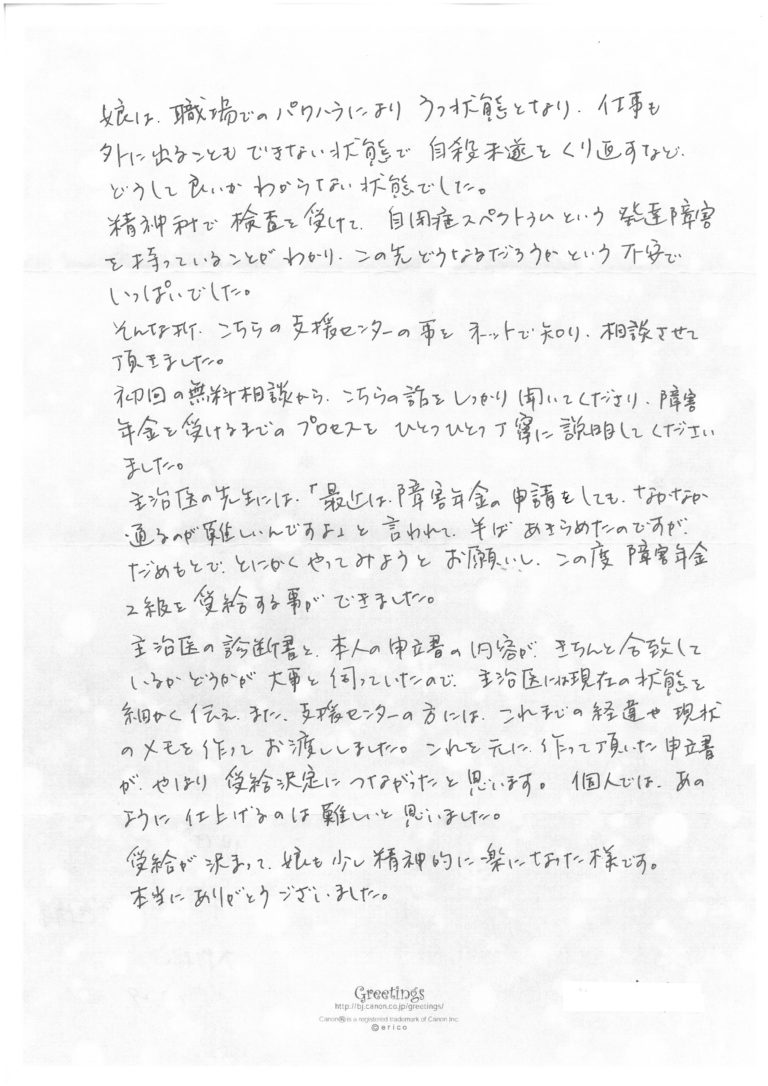 娘は、職場でのパワハラにより うつ状態となり、仕事も
外に出ることも できない状態で 自殺未遂を くり返すなど、
どうして良いか わからない 状態でした。
精神科で 検査を 受けて、自閉症スペクトラムという 発達障害
を 持っていることが わかり、この先 どうなるだろうか という 不安で
いっぱいでした。
そんな折、こちらの支援センターの事を ネットで知り、相談させて
頂きました。
初回の無料相談から、こちらの話を しっかり 聞いてくださり、障害
年金を 受けるまでの プロセスを ひとつひとつ 丁寧に 説明して ください
ました。
主治医の先生には、「最近は、障害年金の 申請をしても、なかなか
通るのが 難しいんですよ」と 言われて、半ば あきらめたのですが、
だめもとで、とにかく やってみようと お願いし、この度 障害年金
2級を 受給する事が できました。
主治医の 診断書と、本人の 申立書の 内容が、きちんと 合致して
いるか どうかが 大事と 伺っていたので、主治医には 現在の 状態を
細かく 伝え、また、支援センターの 方には、これまでの 経過や 現状
のメモを 作って お渡ししました。これを 元に、作って 頂いた 申立書
が、やはり 受給決定に つながったと 思います。 個人では、あの
ように 仕上げるのは 難しいと 思いました。
受給が 決まって、娘も 少し 精神的に 楽に なった 様です。
本当に ありがとう ございました。
Greetings
http://bj.canon.co.jp/greetings/
Canon® is a registered trademark of Canon Inc.
©erico